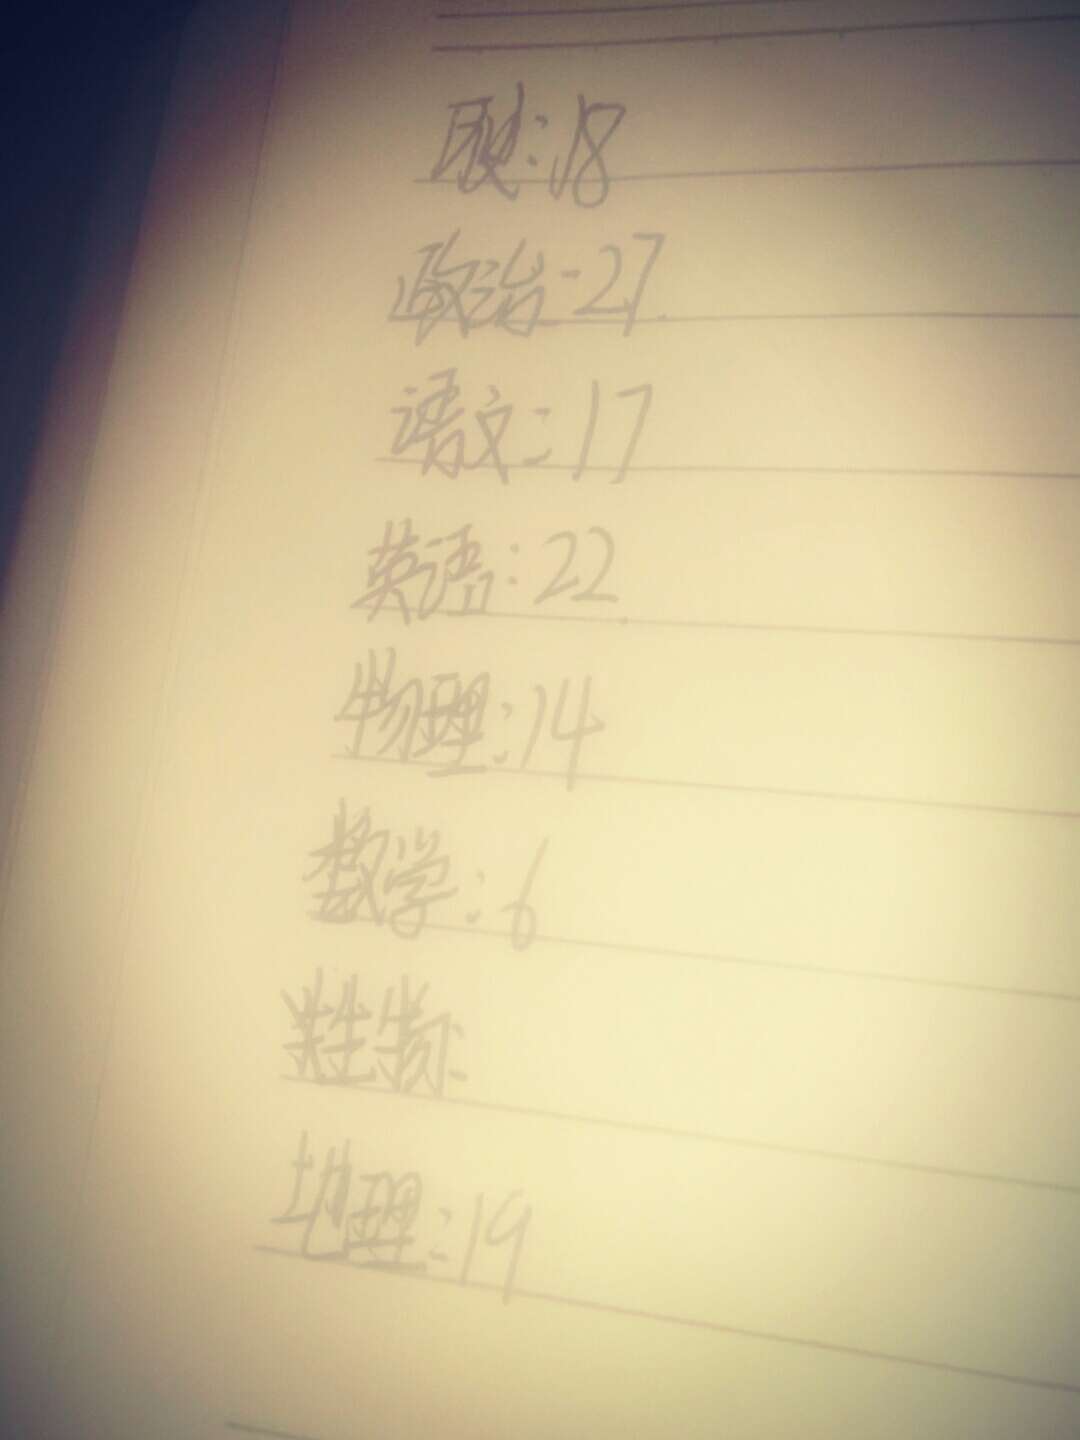 历史:18
政治:27
语文:17
英语:22
物理:14
数学:6
生物:
地理:19